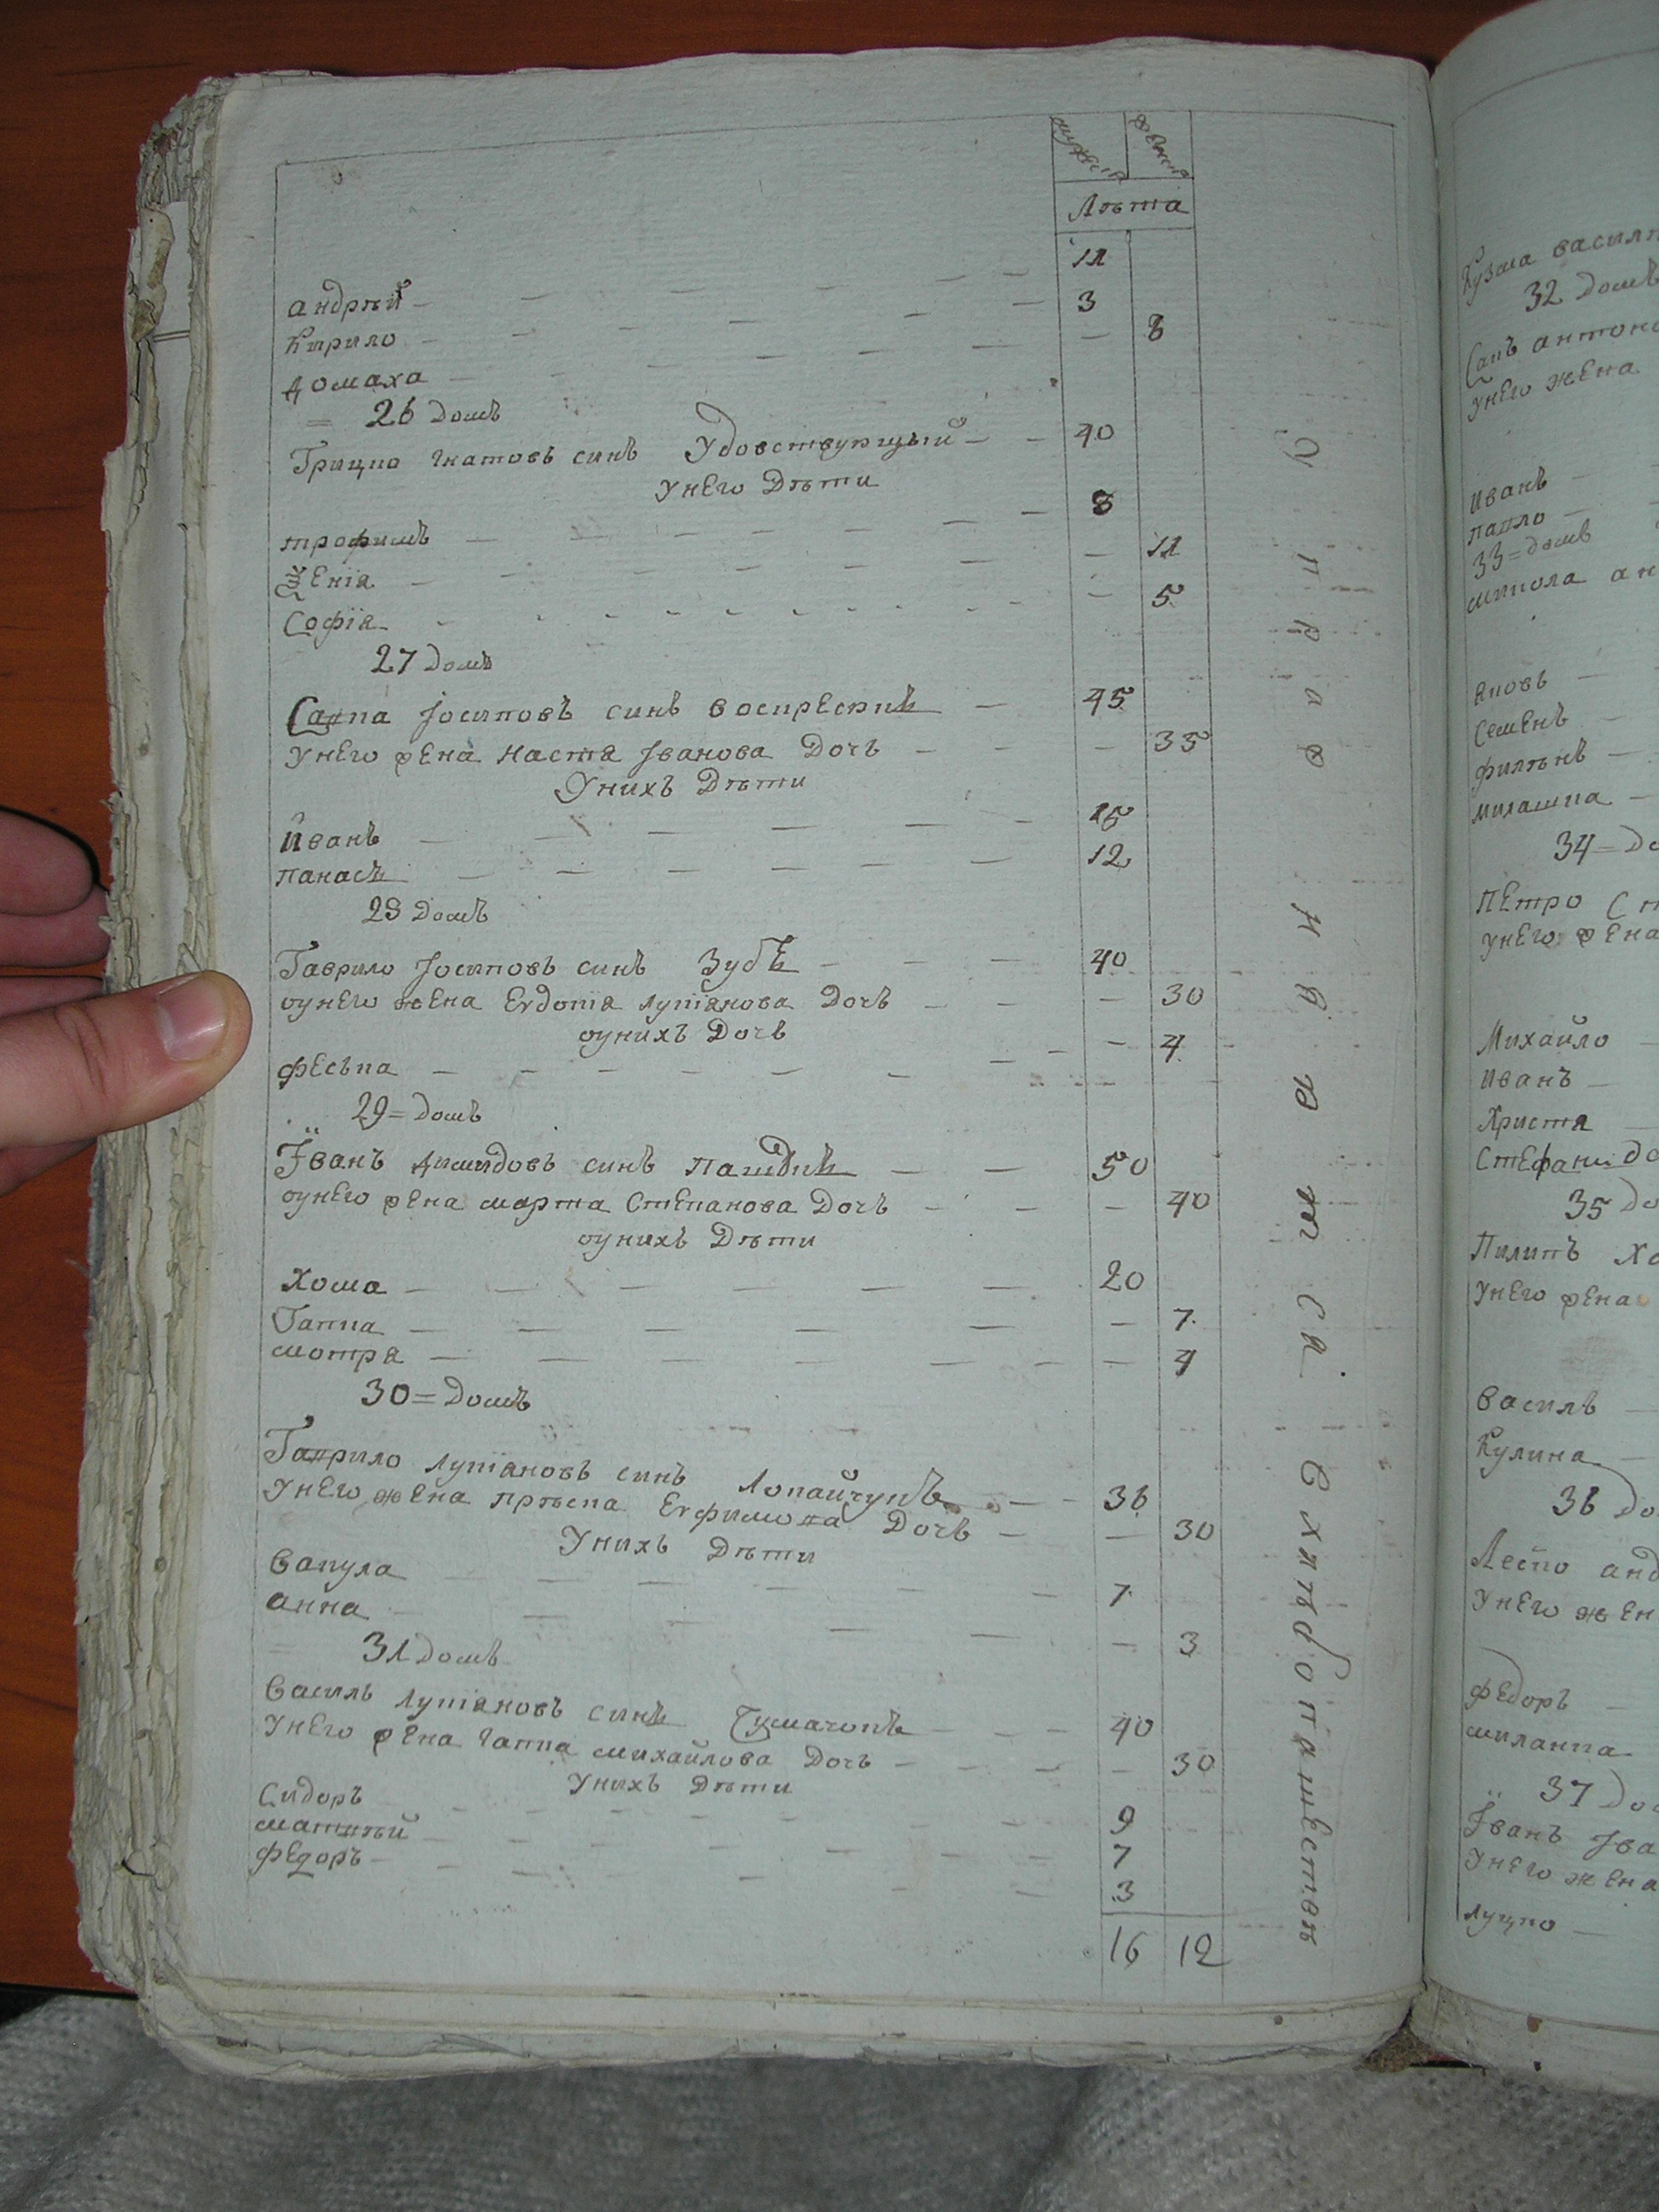 мужеск женск
Лѣта
андрѣй — 11
Кирило — 3
домаха — 8
26 домъ
Грицко Гнатовъ синъ Удовствующый — 40
У него Дѣти
трофимъ — 8
Ѯенїя — 11
Софїя — 5
27 домъ
Савка Іосиповъ синъ воскрескии — 45
У него жена Настя Іванова Дочъ — 35
У нихъ Дѣти
Иванъ — 15
панасъ — 12
28 домъ
Гаврило Іосиповъ синъ Зубъ — 40
оу него жена Евдокїя лукїянова Дочъ — 30
оу нихъ Дочъ
феська — 4
29 = домъ
Іванъ димидовъ синъ — 50
оу него жена марта Степанова Дочъ — 40
оу нихъ Дѣти
хома — 20
Гапка — 7
мотря — 4
30 = Домъ
Гаврило лукїяновъ синъ Лопайчукъ — 36
У него жена прѣска Евфимова Дочъ — 30
У нихъ Дѣти
Вакула — 7
анна — 3
31 домъ
Василь лукїяновъ синъ Чумачокъ — 40
У него жена гапка михайлова Дочъ — 30
У нихъ Дѣти
Сидоръ — 9
матвѣй — 7
федоръ — 3
16 12
Упражняется
В хлѣбопашествѣ
Кузма васил
32 домъ
антоно
У него жена
Иванъ
павло
33 = домъ
микола ан
яковъ
семенъ
михашка
34 = До
Петро С
У него жена
Михайло
Иванъ
Христя
Стефани
35 До
Пилипъ Хо
У него жена
Василь
Кулина
36 до
Леско анд
У него жен
федоръ
миланка
37 До
Іванъ Іва
У него жена
луцко